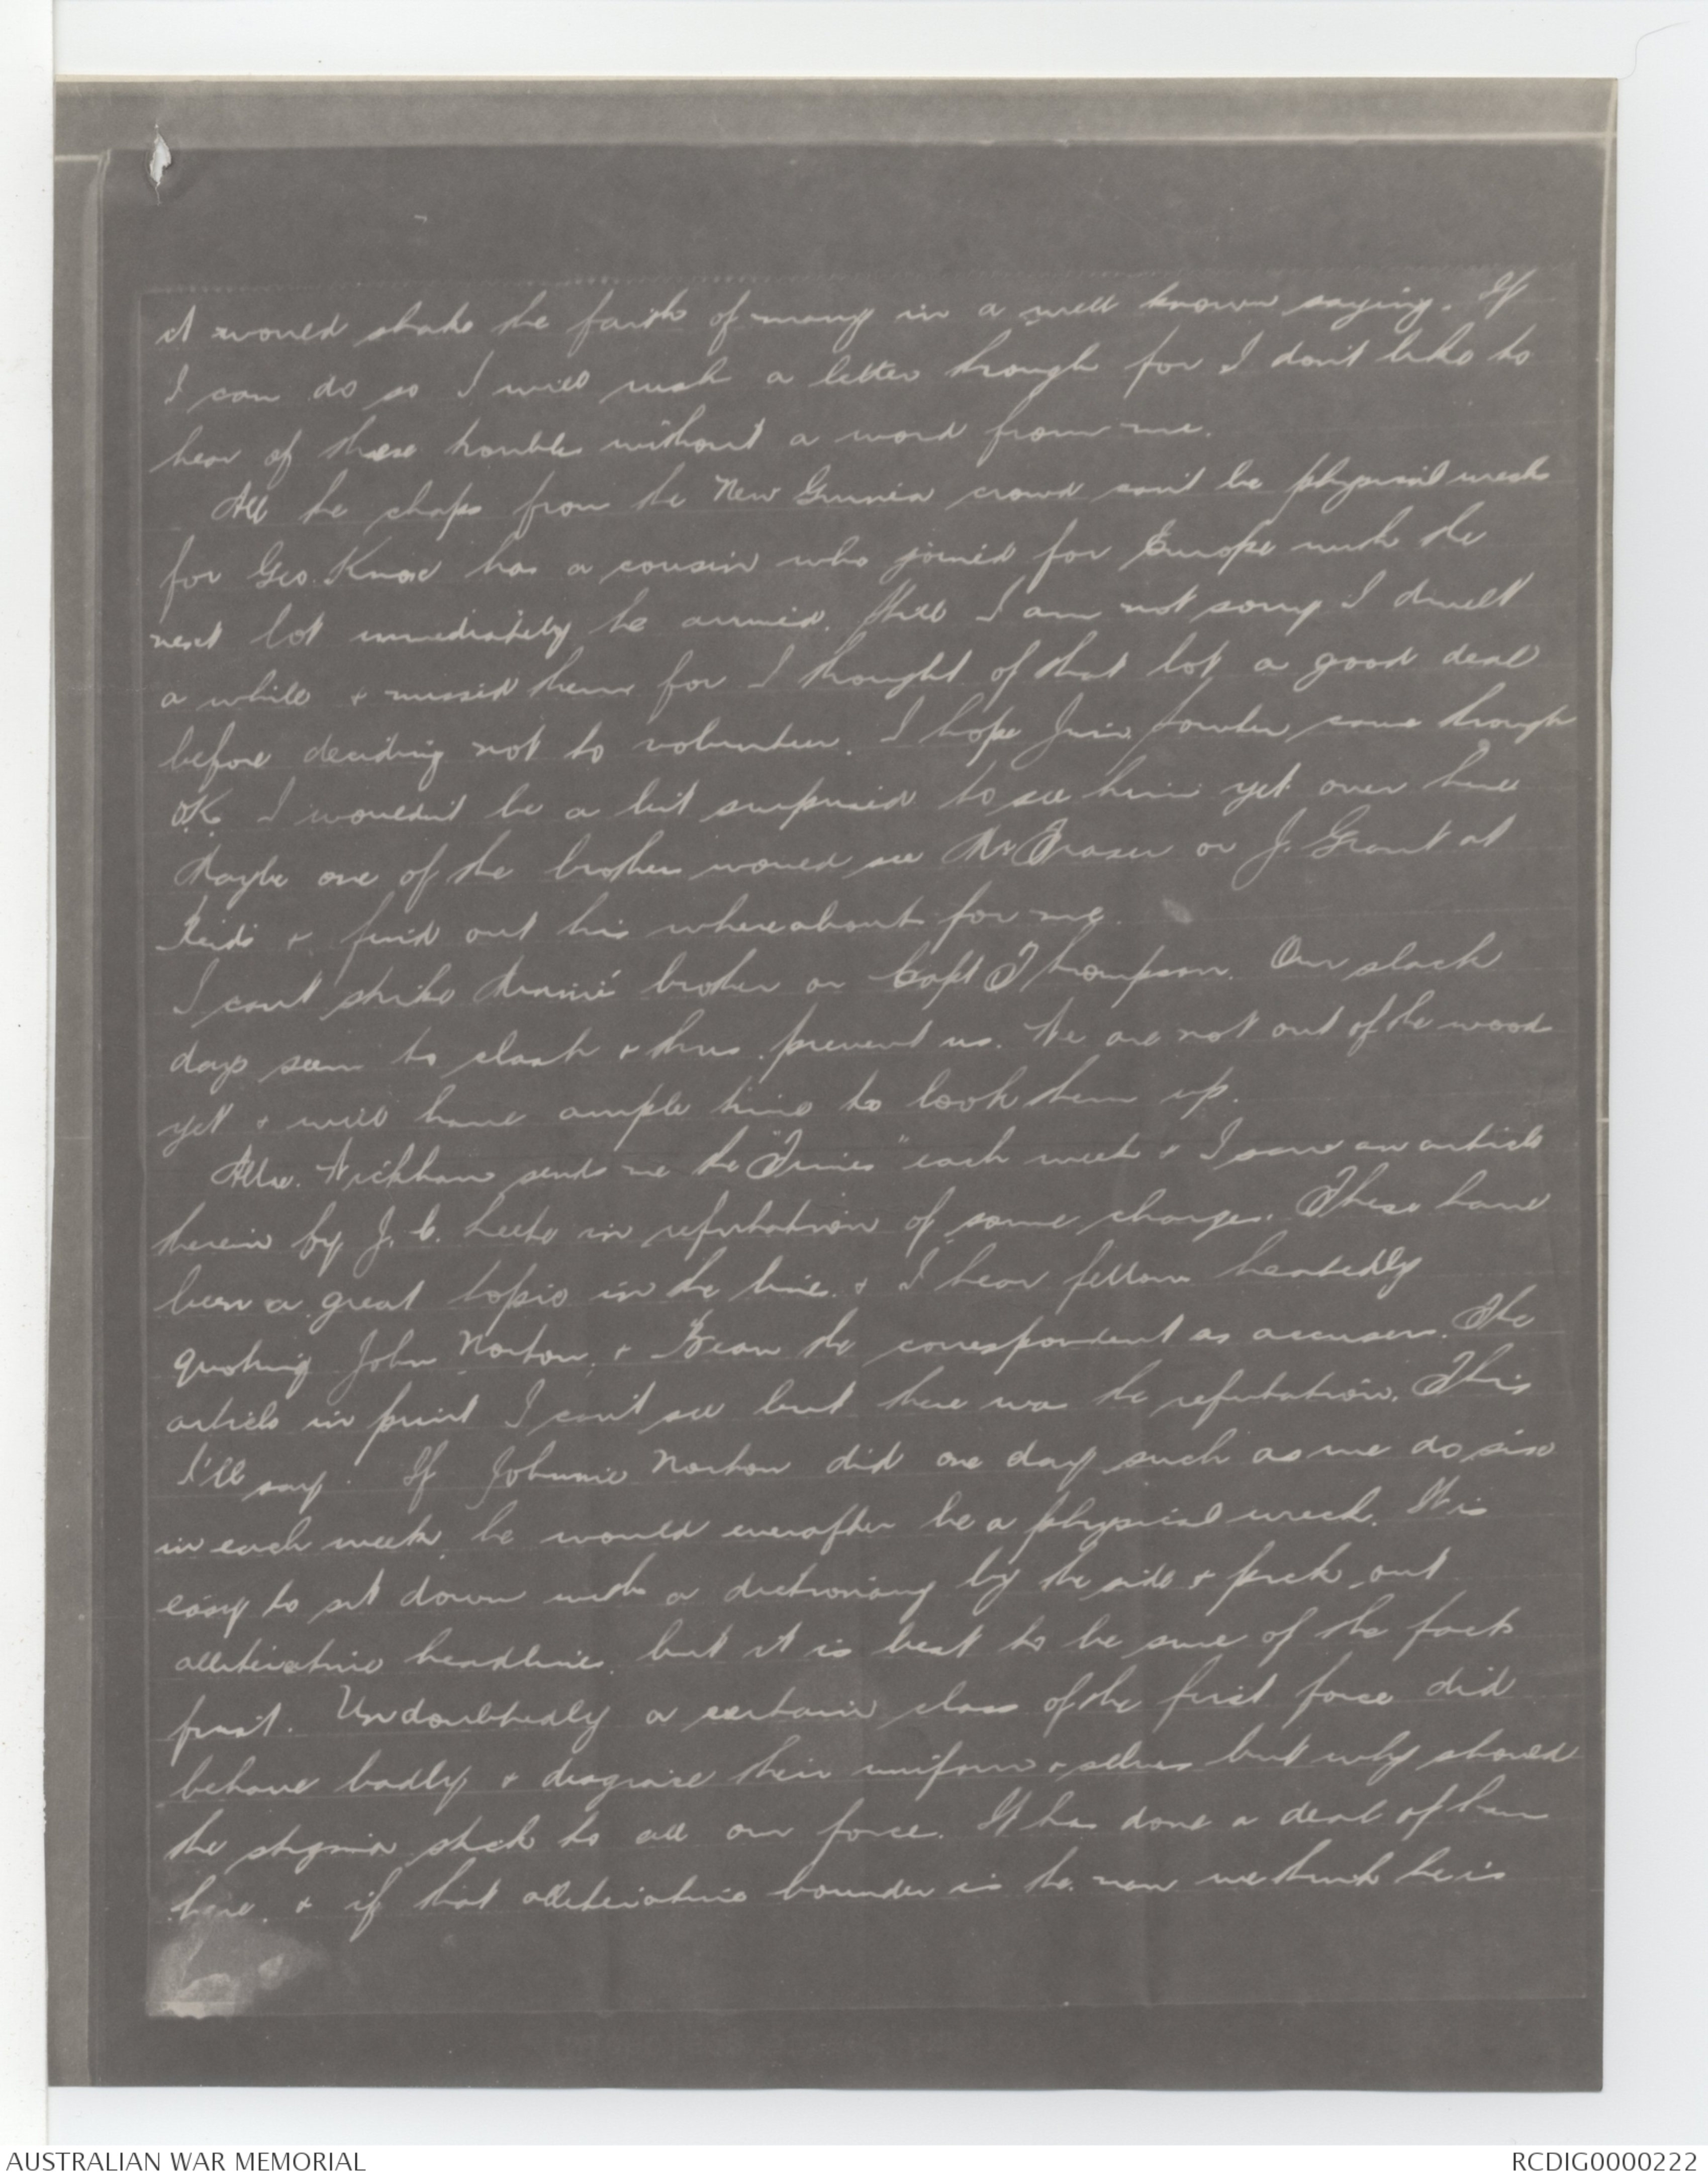 it would shake the faith of many in a well known saying. If
I can do so I will rush a letter through for I don't like to
hear of these troubles without a word from me.
All the chaps from the New Guinea crowd can't be physical wrecks
for Geo. Knox has a cousin who joined for Europe with the
next lot immediately he arrived. Still I am not sorry I dwelt
a while & missed them for I thought of that lot a good deal
before deciding not to volunteer. I hope Jim Fowler came through
O.K. I wouldn't be a bit surprised to see him yet over here
Maybe one of the brothers would see Mr Fraser or J. Grant at
Reids & find out his whereabouts for me.
I can't strike brother or Capt Thompson. Our slack
days seem to clash & thus prevent us. We are not out of the wood
yet & will have ample time to look them up.
Wickham sends me the "Times" each week & I saw an article
therein by J. C. in refutation of some charges. These have
been a great topic in the lines & I hear fellows heatedly
quoting John Norton, & Bean the correspondent as accusers. The
article in print I can't see but there was the refutation. This
I'll say. If Johnnie Norton did one day such as we do six
in each week he would everafter be a physical wreck. It is
easy to sit down with a dictionary by the side & pick out
alliterative headlines, but it is best to be sure of the facts
first. Undoubtedly a certain class of the first force did
behave badly & disgrace their uniform & selves but why should
the stigma stick to all our force. It has done a deal of harm
here, & if that alliterative bounder is the man we think he is
AUSTRALIAN WAR MEMORIAL
RCDIG0000222